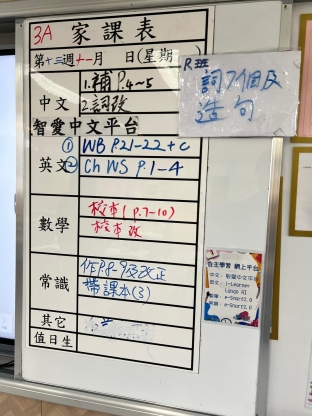 3A 家課表
第十三週十一月 日(星期 )
R班
詞7個及
造句
中文
1.補 P.4~5
2.詞改
智愛中文平台
英文
① WB P.21-22 + c
② Ch WS P.1-4
數學
校本(P.7-10)
校本改
常識
作P.8-9及改正
帶課本(3)
其它
值日生
自主學習 網上平台
中文: 智愛中文平台
i-Learner